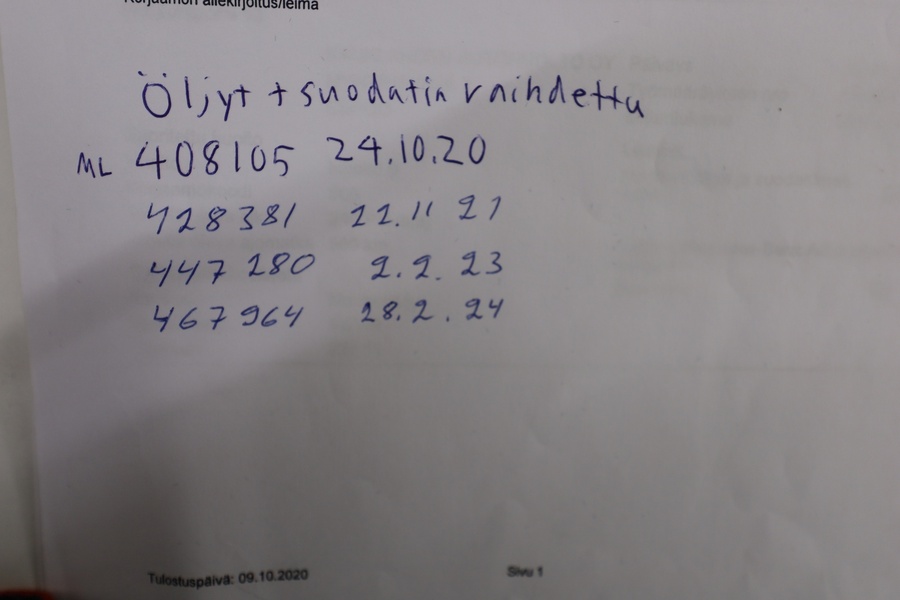 Korjaamon allekirjoitus/leima
Öljyt + suodatin vaihdettu
ML 408105 24.10.20
428381 22.11 21
447280 2.2. 23
467964 28.2. 24
Tulostuspäivä: 09.10.2020 Sivu 1